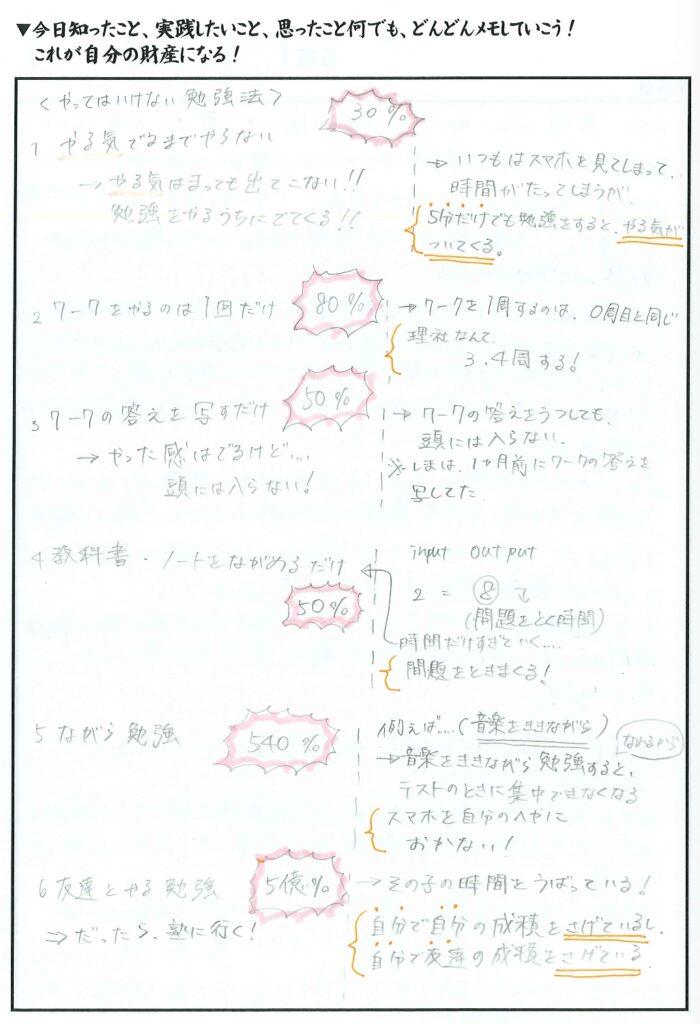 ▼今日知ったこと、実践したいこと、思ったこと何でも、どんどんメモしていこう！
これが自分の財産になる！
〈やってはいけない勉強法〉
30%
1 やる気でるまでやらない
→やる気はまっても出てこない!!
勉強をやるうちにでてくる!!
→いつもはスマホを見てしまって、
時間がたってしまうが、
5分だけでも勉強をすると、やる気が
ついてくる。
2 ワークをやるのは1回だけ
80%
→ワークを1周するのは、0周目と同じ
理社なんて、
3.4周する!
3 ワークの答えを写すだけ
50%
→やった感はでるけど….
頭には入らない!
→ワークの答えをうつしても、
頭には入らない.
※しまは、1ヶ月前にワークの答えを
写してた.
4 教科書・ノートをながめるだけ
50%
input output
2 = 8
(問題をとく時間)
時間だけすぎていく….
問題をときまくる!
5 ながら勉強
540%
例えば….(音楽をききながら)
なれるから
→音楽をききながら勉強すると、
テストのときに集中できなくなる
スマホを自分のへやに
おかない!
6 友達とやる勉強
5億%
⇒だったら、塾に行く!
→その子の時間をうばっている!
自分で自分の成積をさげているし、
自分で友達の成積をさげている.